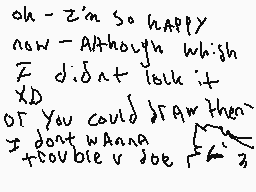 oh - I'm so hAPPY
now - Although whish
I didnt lolk it
XD
or You could drAw them
I dont wAnnA
trouble u doe